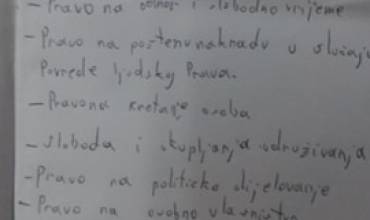 - Pravo na odmor i slobodno vrijeme
- Pravo na poštenu naknadu u slučaju
Povrede ljudsky Prava.
- Pravo na kretanje osoba
- sloboda i okupljanja udruživanja
- Pravo na političko dijelovanje
- Pravo na osobno vlasništvo